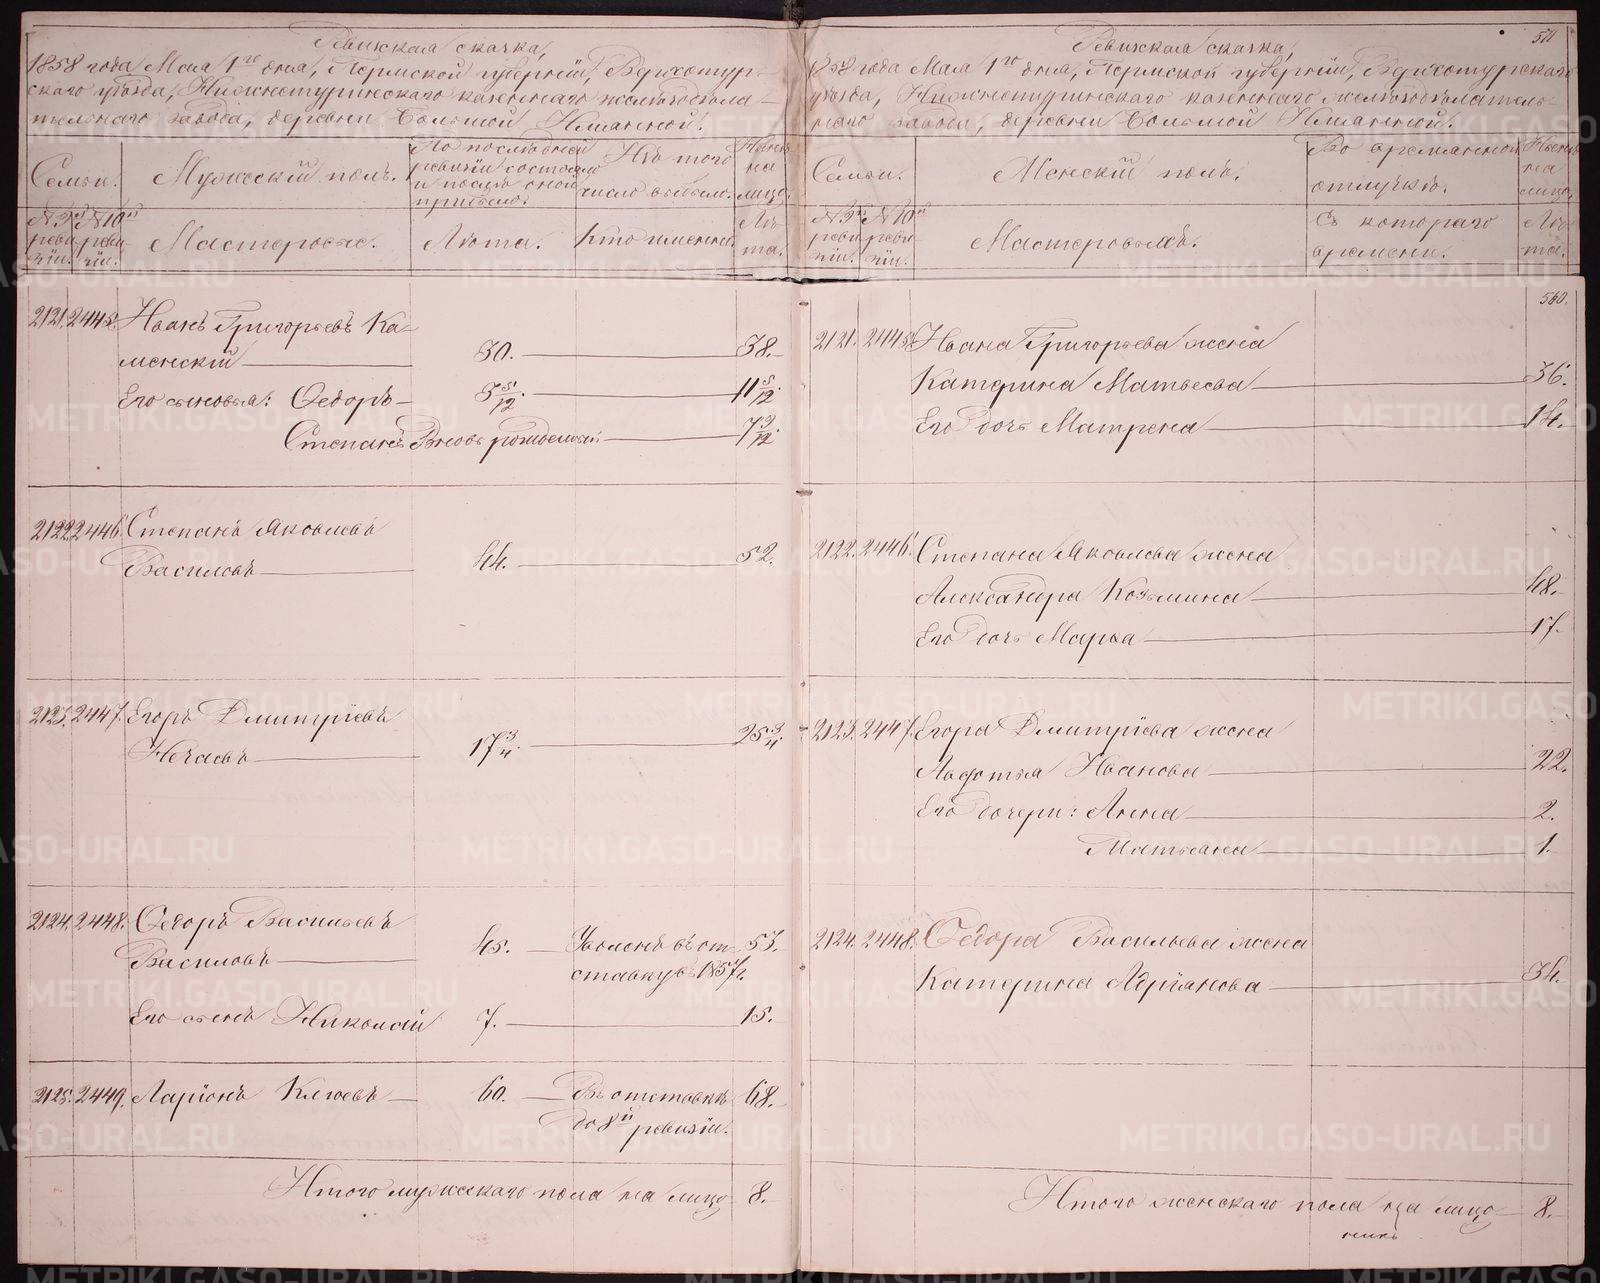 Ревизская сказка,
1858 года Мая 1го дня, Пермской губернии, Верхотур-
скаго уѣзда, Нижнетуринскаго казеннаго желѣзодѣла-
тельнаго завода, деревни Большой Именной.
Семьи.
Мужескій полъ.
По послѣдней
ревизіи состояло
и послѣ оной
прибыло.
Изъ того
число выбыло.
Нынѣ
на
лицо.
№ 9й
реви-
зіи.
№ 10й
реви-
зіи.
Мастеровые.
Лѣта.
Кто именно.
Лѣ-
та.
2121. 2445. Иванъ Григорьевъ Ка-
менскій 30. 38.
Его сыновья: Федоръ 3 5/12. 11 5/12.
Степанъ Вновь рожденный 7 2/12.
2122. 2446. Степанъ Яковлевъ
Василовъ 44. 52.
2123. 2447. Егоръ Дмитріевъ
Нечаевъ 17 3/4. 25 3/4.
2124. 2448. Федоръ Васильевъ
Василовъ 45. Уволенъ въ от- 53.
ставку въ 1857 г.
Его сынъ Николай 7. 15.
2125. 2449. Ларіонъ Клюевъ 60. Въ отставкѣ 68.
до 8й ревизіи.
Итого мужескаго пола на лицо 8.
Ревизская сказка,
1858 года Мая 1го дня, Пермской губерніи, Верхотурскаго
уѣзда, Нижнетуринскаго казеннаго желѣзодѣлатель-
наго завода, деревни Большой Именной.
Семьи.
Женскій полъ.
Во временной
отлучкѣ.
Нынѣ
на
лицо.
№ 9й
реви-
зіи.
№ 10й
реви-
зіи.
Мастеровыхъ.
Съ котораго
времени.
Лѣ-
та.
560.
2121. 2445. Ивана Григорьева жена
Катерина Матвеева 36.
Его дочь Матрена 14.
2122. 2446. Степана Яковлева жена
Александра Козьмина 48.
Его дочь Марья 17.
2123. 2447. Егора Дмитріева жена
Авдотья Иванова 22.
Его дочери: Анна 2.
Матьяна 1.
2124. 2448. Федора Васильева жена
Катерина Адріанова 34.
Итого женскаго пола на лицо 8.
METRIKI.GASO-URAL.RU